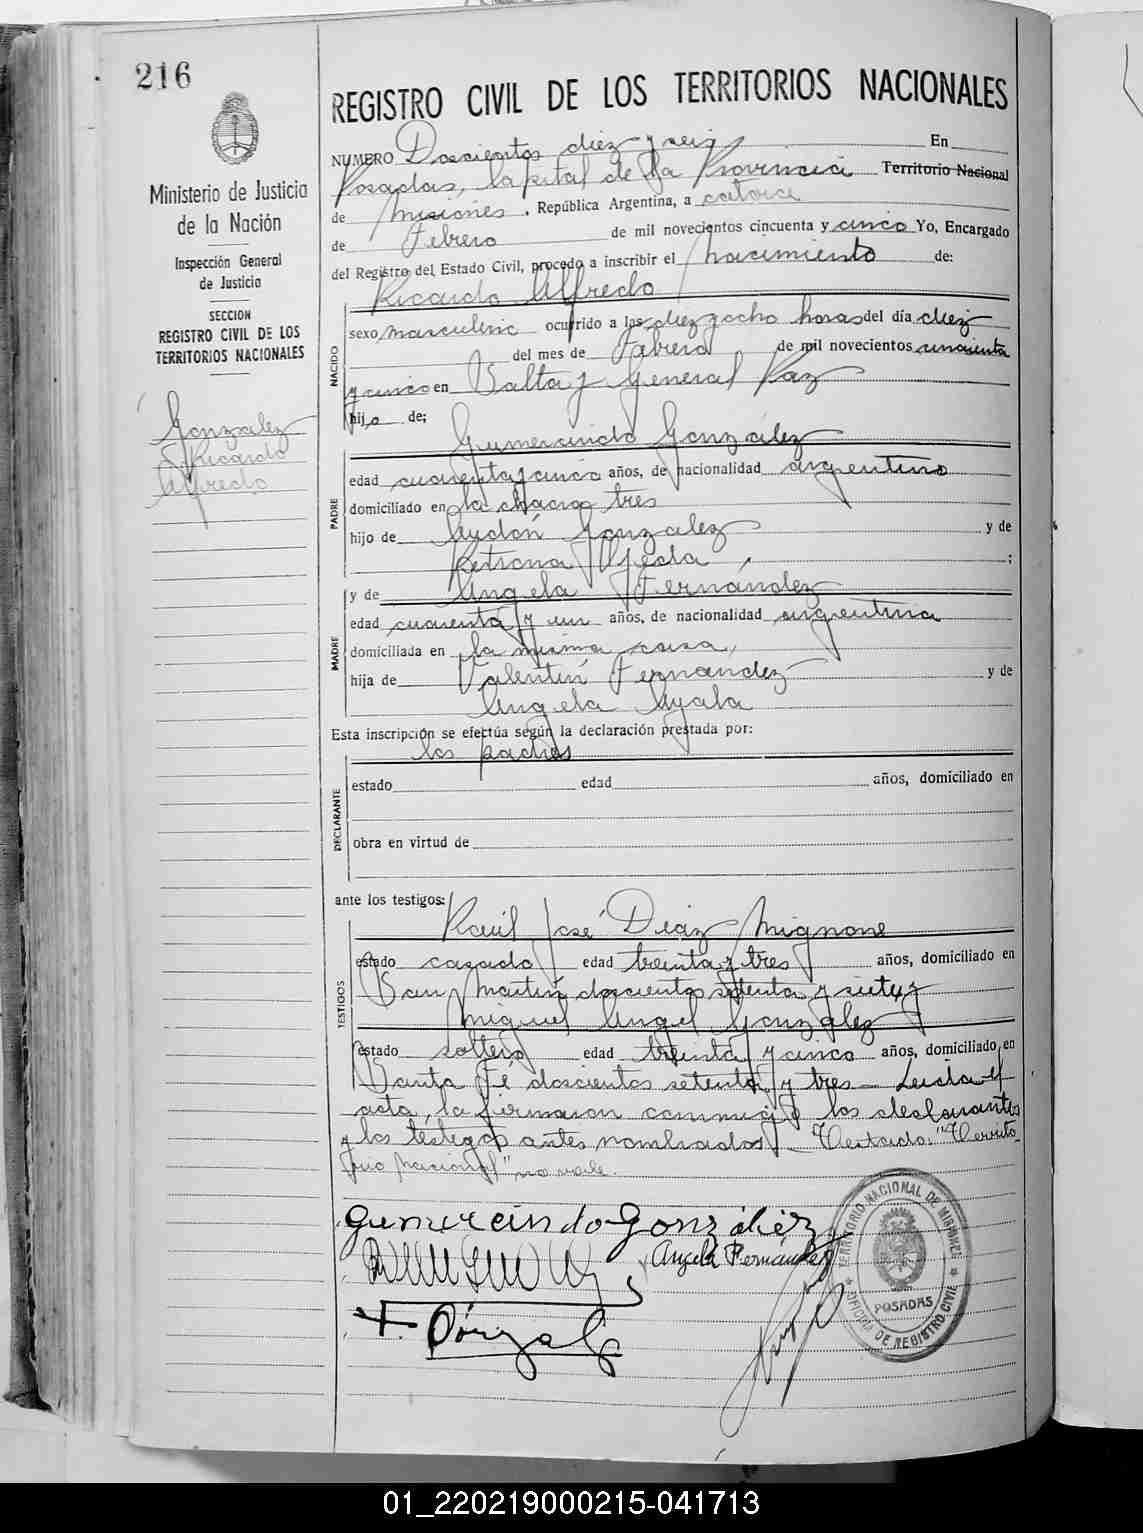 216
Ministerio de Justicia
de la Nación
Inspección General
de Justicia
SECCION
REGISTRO CIVIL DE LOS
TERRITORIOS NACIONALES
Gonzalez
Ricardo
Alfredo
REGISTRO CIVIL DE LOS TERRITORIOS NACIONALES
NUMERO Doscientos diez y seis En
Posadas, Capital de la Provincia Territorio Nacional
de Misiones, República Argentina, a catorce
de Febrero de mil novecientos cincuenta y cinco Yo, Encargado
del Registro del Estado Civil, procedo a inscribir el nacimiento de:
Ricardo Alfredo
NACIDO
sexo masculino ocurrido a las diez y ocho horas del día diez
del mes de Febrero de mil novecientos cincuenta
y cinco en Salta y General Paz
hijo de;
Gumercindo González
PADRE
edad cuarenta y cinco años, de nacionalidad argentino
domiciliado en la chacra tres
hijo de Gonzalez y de
Petrona Ojeda ;
y de Angela Fernández
MADRE
edad cuarenta y un años, de nacionalidad argentina
domiciliada en la misma casa,
hija de Valentín Fernandez y de
Angela Ayala
Esta inscripción se efectúa según la declaración prestada por:
los padres
DECLARANTE
estado edad años, domiciliado en
obra en virtud de
ante los testigos:
Raúl José Diaz Mignone
TESTIGOS
estado casado edad treinta y tres años, domiciliado en
San Martín doscientos setenta y siete y
Miguel Angel González
estado soltero edad treinta y cinco años, domiciliado en
Santa Fé doscientos setenta y tres — Leida el
acta, la firmaron conmigo los declarantes
y los testigos antes nombrados — Testado: "Territo
rio Nacional" no vale.
Gumercindo Gonzáléz
Angela Fernández
TERRITORIO NACIONAL DE MISIONES
POSADAS
OFICINA DE REGISTRO CIVIL
01_220219000215-041713